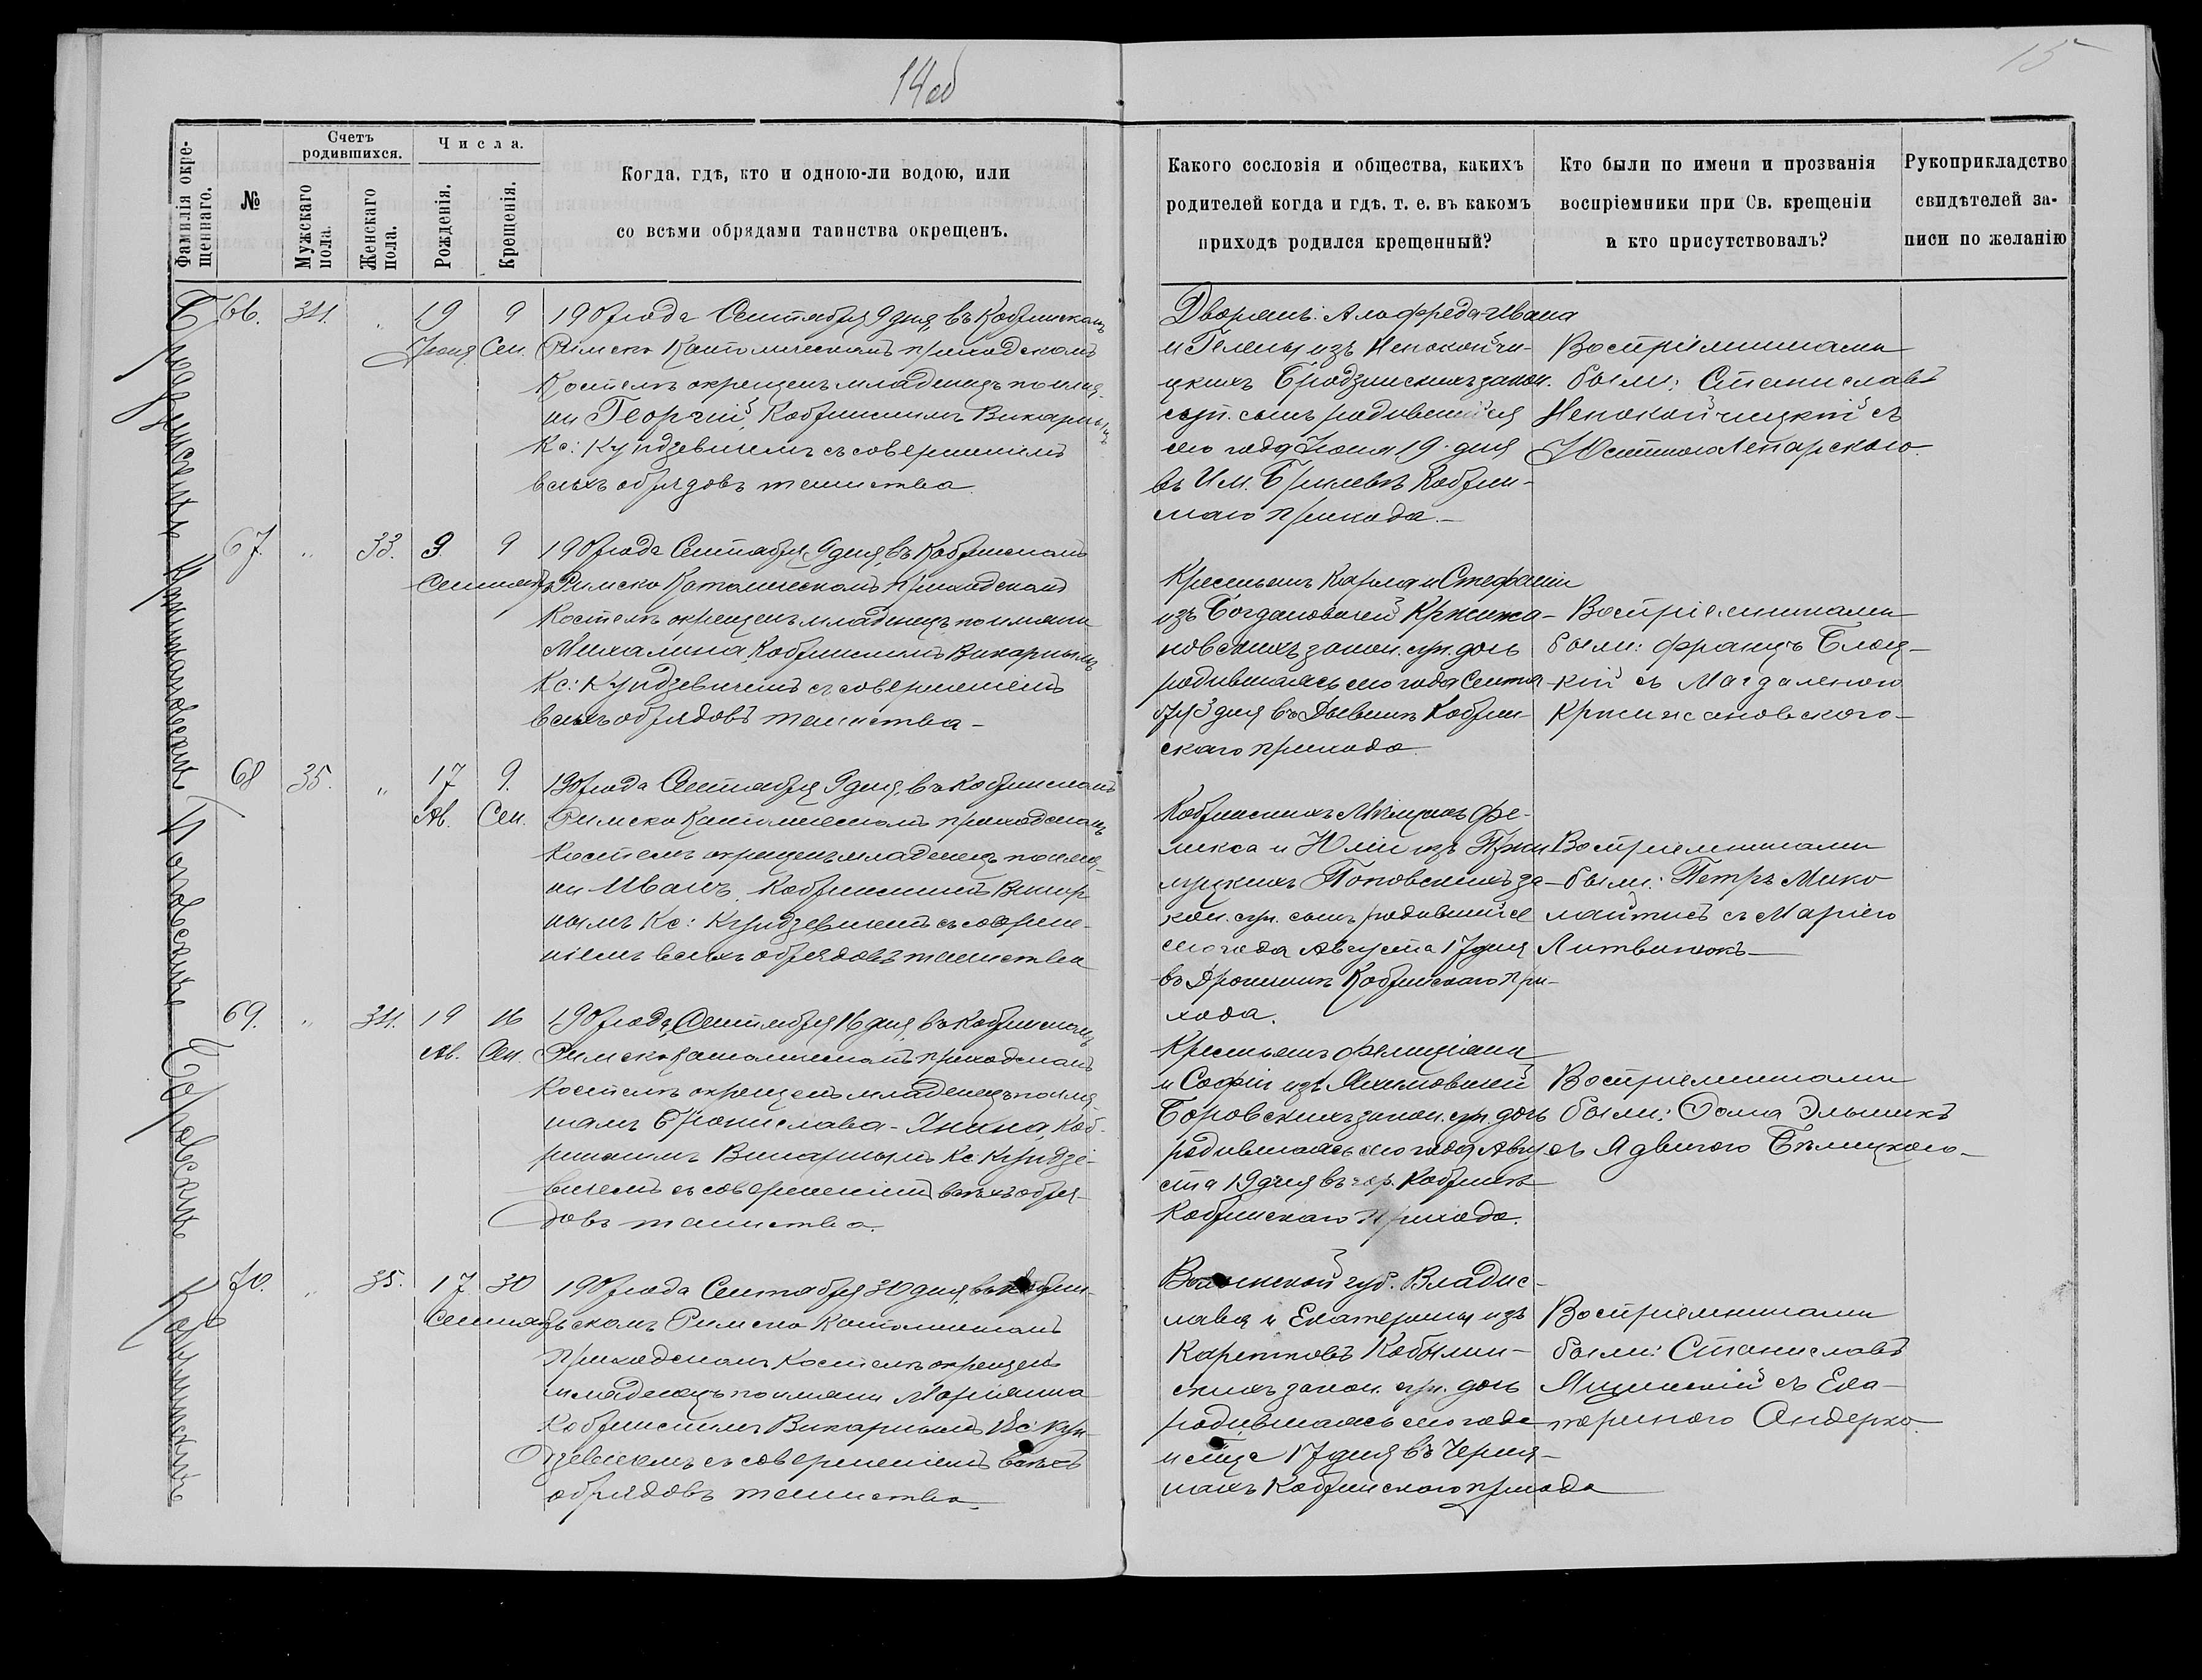 14об
15
Фамилія окре-
щеннаго.
№
Счетъ
родившихся.
Мужскаго
пола.
Женскаго
пола.
Числа.
Рожденія.
Крещенія.
Когда, гдѣ, кто и одною-ли водою, или
со всѣми обрядами таинства окрещенъ.
Какого сословія и общества, какихъ
родителей когда и гдѣ, т. е. въ какомъ
приходѣ родился крещенный?
Кто были по имени и прозванія
воспріемники при Св. крещеніи
и кто присутствовалъ?
Рукоприкладство
свидѣтелей за-
писи по желанію
66. 34. " 19 9
Іюня Сен.
1907 года Сентября 9 дня, въ Кобринскомъ
Римско Католическомъ приходскомъ
Костелѣ окрещенъ младенецъ по име-
ни Георгій, Кобринскимъ Викарнымъ
Кс: Кундзевичемъ съ совершеніемъ
всѣхъ обрядовъ таинства
Дворянъ: Альфреда-Ивана
и Гелены изъ Непокойчи-
цкихъ Бродзинскихъ закон.
супр. сынъ родившійся
сего года Іюня 19 дня
въ Им. Брилевѣ Кобрин-
скаго прихода.—
Воспріемниками
были: Станиславъ
Непокойчицкій съ
Юстиною Лепарскою
67. " 33. 3. 9
Сентяб.
1907 года Сентября 9 дня, въ Кобринскомъ
Римско Католическомъ Приходскомъ
Костелѣ окрещенъ младенецъ по имени
Михалина, Кобринскимъ Викарнымъ
Кс: Кундзевичемъ съ совершеніемъ
всѣхъ обрядовъ таинства—
Крестьянъ Карла и Стефаніи
изъ Богдановичей Кржижа-
новскихъ закон. супр. дочь
родившаяся сего года Сентя-
бря 3 дня въ Дывинѣ Кобрин-
скаго прихода
Воспріемниками
были: Францъ Блоц-
кій съ Магдаленою
Кржижановскою—
68 35. " 17 9.
Ав. Сен.
1907 года Сентября 9 дня, въ Кобринскомъ
Римско Католическомъ приходскомъ
Костелѣ окрещенъ младенецъ по име-
ни Иванъ, Кобринскимъ Викар
нымъ Кс: Кундзевичемъ съ соверше-
ніемъ всѣхъ обрядовъ таинства
Кобринскихъ Мѣщанъ Фе-
ликса и Юліи изъ
Поповскихъ за-
кон. супр. сынъ родившійся
сего года Августа 17 дня
въ Кобринскаго При-
хода.
Воспріемниками
были: Петръ Мико
лайтисъ съ Маріею
Литвинюкъ—
69. " 34. 19 16
Ав. Сен.
1907 года, Сентября 16 дня, въ Кобринскомъ
Римско Католическомъ приходскомъ
Костелѣ окрещенъ младенецъ по име-
намъ Бронислава-Янина, Коб-
ринскимъ Викарнымъ Кс. Кундзе-
вичемъ съ совершеніемъ всѣхъ обря-
довъ таинства.
Крестьянъ Фелиціана
и Софіи изъ
Боровскихъ закон. супр. дочь
родившаяся сего года Авгу-
ста 19 дня въ гор. Кобринѣ
Кобринскаго Прихода.
Воспріемниками
были:
съ Ядвигою Бѣлицкою—
70. " 35. 17 30
Сентяб.
1907 года Сентября 30 дня, въ Кобрин-
скомъ Римско Католическомъ
приходскомъ Костелѣ окрещенъ
младенецъ по имени Маріанна
Кобринскимъ Викарнымъ Кс: Кун-
дзевичемъ съ совершеніемъ всѣхъ
обрядовъ таинства.
Волынской губ. Владис-
лава и Екатерины изъ
Кобылин-
скихъ закон. супр. дочь
родившаяся сего года
17 дня въ Черня-
нахъ Кобринскаго прихода
Воспріемниками
были: Станиславъ
съ Ека-
териною